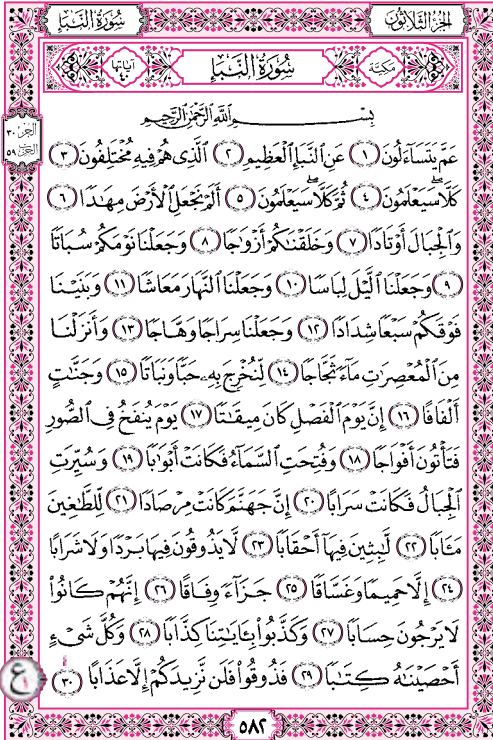 الجزء الثلاثون
سورة النبإ
مكية
سورة النبإ
آياتها ٤٠
الجزء ٣٠
الحزب ٥٩
بِسْمِ اللَّهِ الرَّحْمَٰنِ الرَّحِيمِ
عَمَّ يَتَسَاءَلُونَ ﴿١﴾ عَنِ النَّبَإِ الْعَظِيمِ ﴿٢﴾ الَّذِي هُمْ فِيهِ مُخْتَلِفُونَ ﴿٣﴾
كَلَّا سَيَعْلَمُونَ ﴿٤﴾ ثُمَّ كَلَّا سَيَعْلَمُونَ ﴿٥﴾ أَلَمْ نَجْعَلِ الْأَرْضَ مِهَٰدًا ﴿٦﴾
وَالْجِبَالَ أَوْتَادًا ﴿٧﴾ وَخَلَقْنَٰكُمْ أَزْوَٰجًا ﴿٨﴾ وَجَعَلْنَا نَوْمَكُمْ سُبَاتًا
﴿٩﴾ وَجَعَلْنَا الَّيْلَ لِبَاسًا ﴿١٠﴾ وَجَعَلْنَا النَّهَارَ مَعَاشًا ﴿١١﴾ وَبَنَيْنَا
فَوْقَكُمْ سَبْعًا شِدَادًا ﴿١٢﴾ وَجَعَلْنَا سِرَاجًا وَهَّاجًا ﴿١٣﴾ وَأَنزَلْنَا
مِنَ الْمُعْصِرَٰتِ مَاءً ثَجَّاجًا ﴿١٤﴾ لِّنُخْرِجَ بِهِۦ حَبًّا وَنَبَاتًا ﴿١٥﴾ وَجَنَّٰتٍ
أَلْفَافًا ﴿١٦﴾ إِنَّ يَوْمَ الْفَصْلِ كَانَ مِيقَٰتًا ﴿١٧﴾ يَوْمَ يُنفَخُ فِي الصُّورِ
فَتَأْتُونَ أَفْوَاجًا ﴿١٨﴾ وَفُتِحَتِ السَّمَاءُ فَكَانَتْ أَبْوَٰبًا ﴿١٩﴾ وَسُيِّرَتِ
الْجِبَالُ فَكَانَتْ سَرَابًا ﴿٢٠﴾ إِنَّ جَهَنَّمَ كَانَتْ مِرْصَادًا ﴿٢١﴾ لِّلطَّٰغِينَ
مَـَٔابًا ﴿٢٢﴾ لَّٰبِثِينَ فِيهَا أَحْقَابًا ﴿٢٣﴾ لَّا يَذُوقُونَ فِيهَا بَرْدًا وَلَا شَرَابًا
﴿٢٤﴾ إِلَّا حَمِيمًا وَغَسَّاقًا ﴿٢٥﴾ جَزَاءً وِفَاقًا ﴿٢٦﴾ إِنَّهُمْ كَانُوا
لَا يَرْجُونَ حِسَابًا ﴿٢٧﴾ وَكَذَّبُوا بِـَٔايَٰتِنَا كِذَّابًا ﴿٢٨﴾ وَكُلَّ شَيْءٍ
أَحْصَيْنَٰهُ كِتَٰبًا ﴿٢٩﴾ فَذُوقُوا فَلَن نَّزِيدَكُمْ إِلَّا عَذَابًا ﴿٣٠﴾
ع
٥٨٢